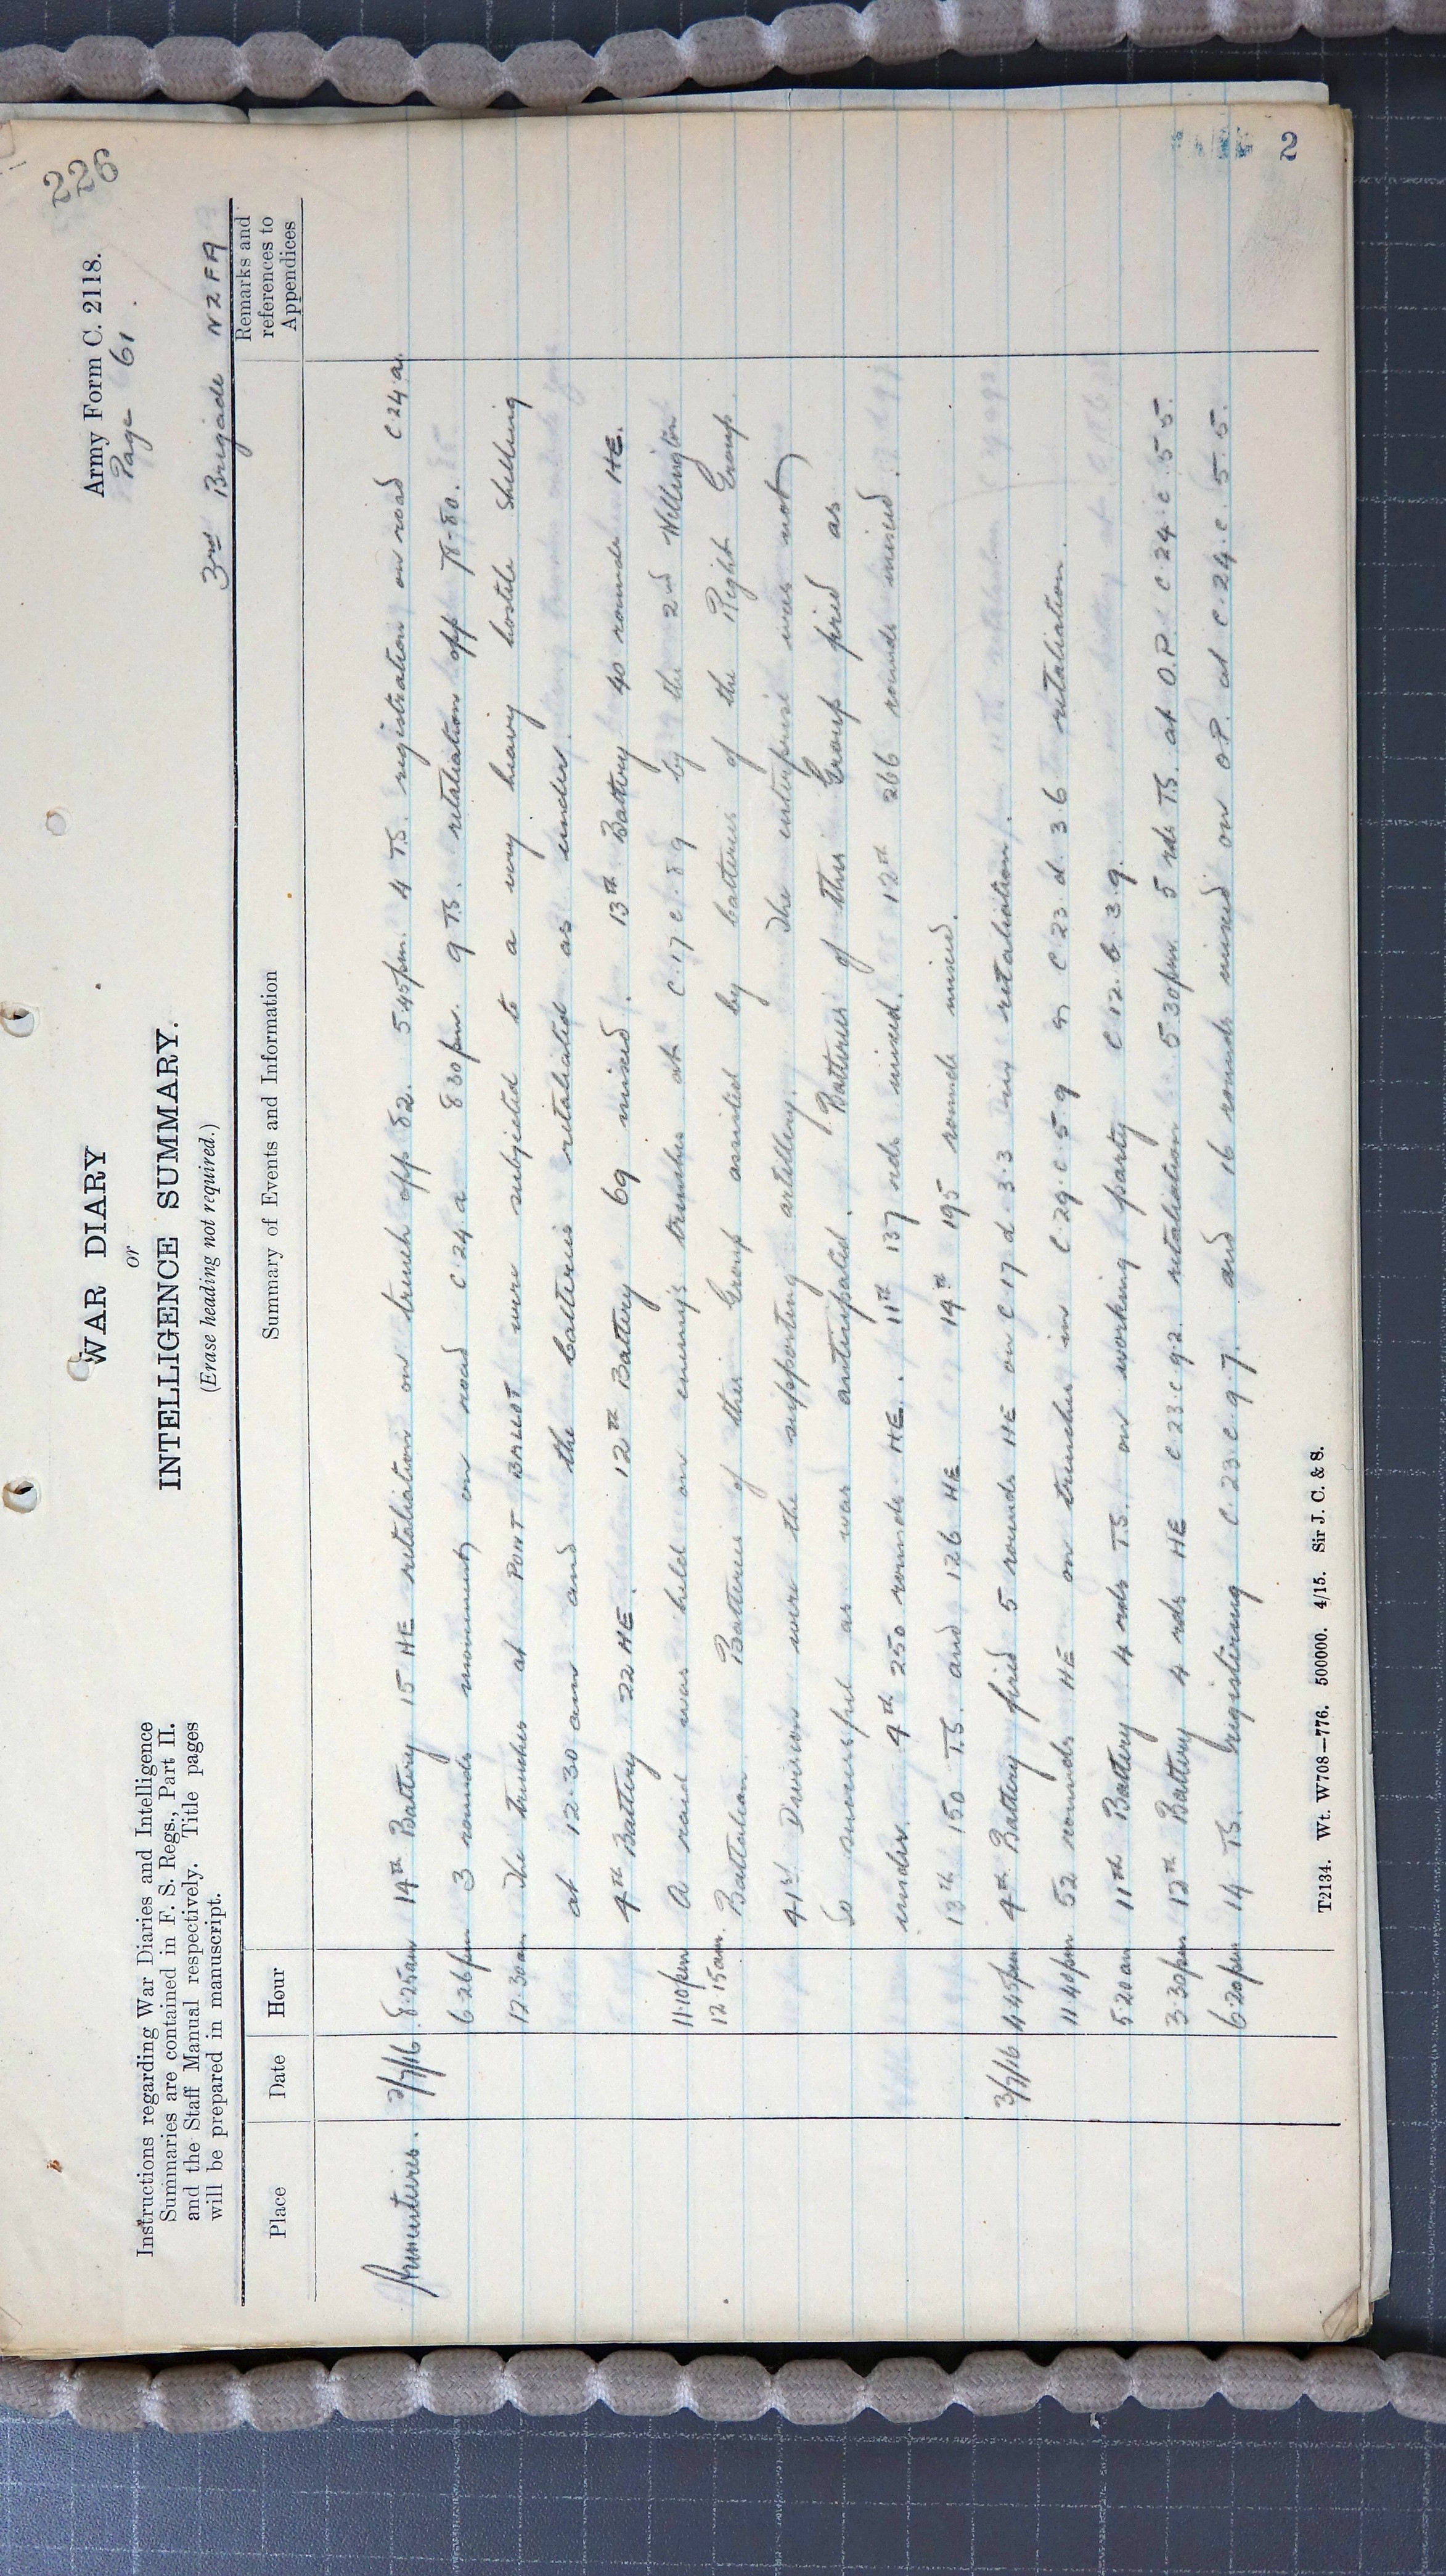 226
Army Form C. 2118.
Page 61.
WAR DIARY
or
INTELLIGENCE SUMMARY.
(Erase heading not required.)
Instructions regarding War Diaries and Intelligence
Summaries are contained in F. S. Regs., Part II.
and the Staff Manual respectively. Title pages
will be prepared in manuscript.
3rd Brigade NZFA
Place Date Hour Summary of Events and Information Remarks and references to Appendices
Armentieres. 2/7/16 8.25am 14th Battery 15 HE retaliation on trench opp 82. 5.45pm. 4 T.S. registration on road C24a.
6.26pm 3 rounds movement on road C.24a 8.30pm. 9 TS. retaliation opp 78-80.
12.30am The trenches at PONT BALLOT were subjected to a very heavy hostile shelling
at 12.30 am and the batteries retaliated as under.
4th Battery 22 HE. 12th Battery 69 mixed. 13th Battery 40 rounds HE.
11.10pm A raid was held on enemy's trenches at C.17c.8.9 by the 2nd Wellington
12.15am. Battalion. Batteries of this Group assisted by batteries of the Right Group.
41st Division were the supporting artillery. The enterprise was not
so successful as was anticipated. Batteries of this Group fired as
under. 4th 250 rounds HE. 11th 137 rds mixed. 12th 266 rounds mixed.
13th 150 T.S. and 126 HE 14th 195 rounds mixed.
3/7/16 4.45pm 4th Battery fired 5 rounds HE on C.17.d.3.3 in retaliation.
11.40pm 52 rounds HE on trenches in C.29.c.5.9 C.23.d.3.6 retaliation.
5.20am 11th Battery 4 rds T.S. on working party C.12.b.3.9.
3.30pm 12th Battery 4 rds HE C.23.c.9.2. retaliation 5.30pm. 5 rds TS. at O.P. C.24.c.5.5.
6.20pm 14 TS. registering C.23.c.9.7. and 16 rounds mixed on O.P. at C.24.c.5.5.
T2134. Wt. W708—776. 500000. 4/15. Sir J. C. & S.
2